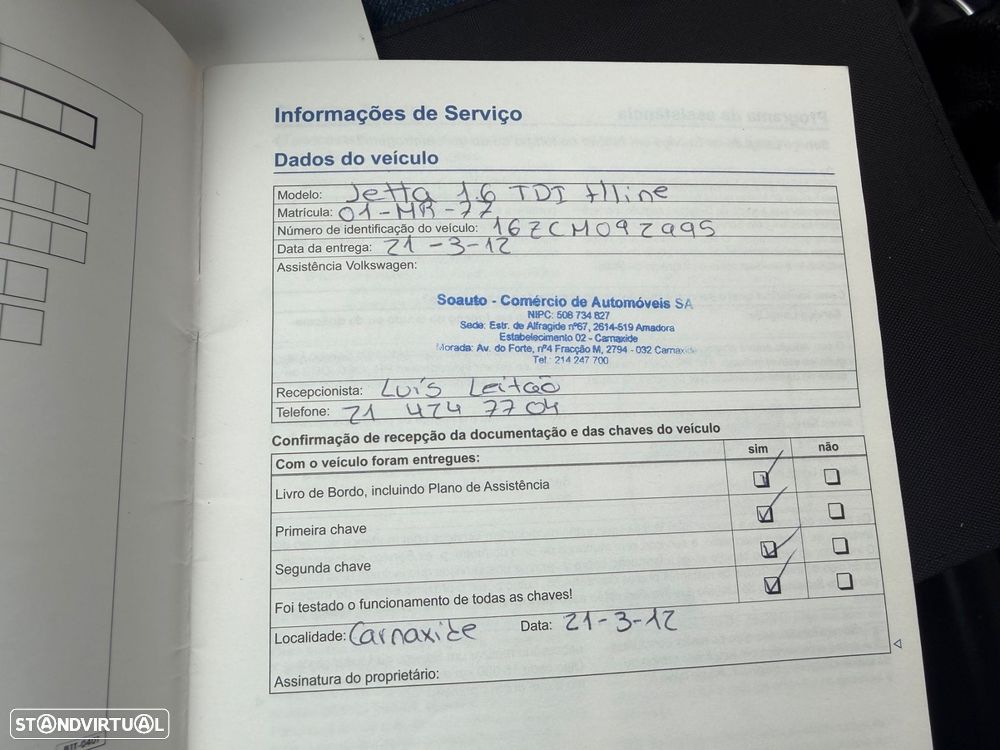 Informações de Serviço
Dados do veículo
Modelo: Jetta 1.6 TDI Hline
Matrícula: 01-MR-77
Número de identificação do veículo: 16ZCM092995
Data da entrega: 21-3-12
Assistência Volkswagen:
Soauto - Comércio de Automóveis SA
NIPC: 508 734 827
Sede: Estr. de Alfragide nº67, 2614-519 Amadora
Estabelecimento 02 - Carnaxide
Morada: Av. do Forte, nº4 Fracção M, 2794 - 032 Carnaxide
Tel: 214 247 700
Recepcionista: Luís Leitão
Telefone: 21 424 7704
Confirmação de recepção da documentação e das chaves do veículo
Com o veículo foram entregues: sim não
Livro de Bordo, incluindo Plano de Assistência
Primeira chave
Segunda chave
Foi testado o funcionamento de todas as chaves!
Localidade: Carnaxide Data: 21-3-12
Assinatura do proprietário:
STANDVIRTUAL